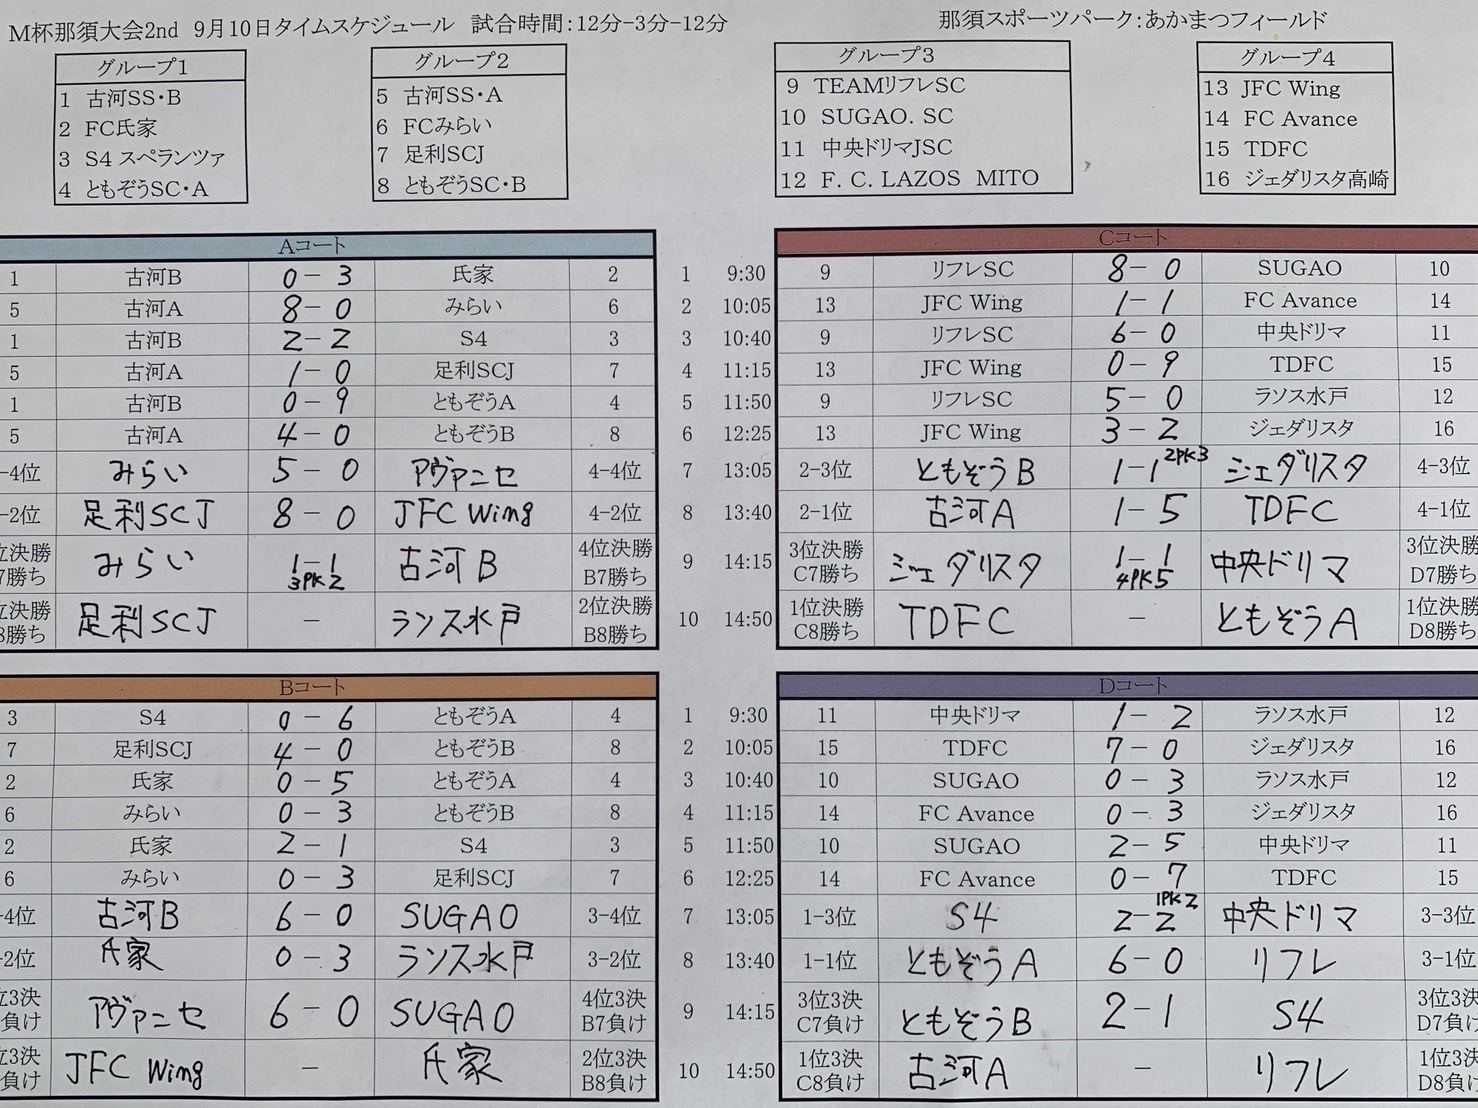 M杯那須大会2nd 9月10日タイムスケジュール 試合時間:12分-3分-12分 那須スポーツパーク:あかまつフィールド
グループ1
1 古河SS・B
2 FC氏家
3 S4 スペランツァ
4 ともぞうSC・A
グループ2
5 古河SS・A
6 FCみらい
7 足利SCJ
8 ともぞうSC・B
グループ3
9 TEAMリフレSC
10 SUGAO. SC
11 中央ドリマJSC
12 F. C. LAZOS MITO
グループ4
13 JFC Wing
14 FC Avance
15 TDFC
16 ジェダリスタ高崎
Aコート
1 古河B 0-3 氏家 2
5 古河A 8-0 みらい 6
1 古河B 2-2 S4 3
5 古河A 1-0 足利SCJ 7
1 古河B 0-9 ともぞうA 4
5 古河A 4-0 ともぞうB 8
-4位 みらい 5-0 アヴァニセ 4-4位
-2位 足利SCJ 8-0 JFC Wing 4-2位
位決勝 7勝ち みらい 1-1 3PK2 古河B 4位決勝 B7勝ち
位決勝 8勝ち 足利SCJ - ランス水戸 2位決勝 B8勝ち
1 9:30
2 10:05
3 10:40
4 11:15
5 11:50
6 12:25
7 13:05
8 13:40
9 14:15
10 14:50
Cコート
9 リフレSC 8-0 SUGAO 10
13 JFC Wing 1-1 FC Avance 14
9 リフレSC 6-0 中央ドリマ 11
13 JFC Wing 0-9 TDFC 15
9 リフレSC 5-0 ラソス水戸 12
13 JFC Wing 3-2 ジェダリスタ 16
2-3位 ともぞうB 1-1 2PK3 ジェダリスタ 4-3位
2-1位 古河A 1-5 TDFC 4-1位
3位決勝 C7勝ち ジェダリスタ 1-1 4PK5 中央ドリマ 3位決勝 D7勝ち
1位決勝 C8勝ち TDFC - ともぞうA 1位決勝 D8勝ち
Bコート
3 S4 0-6 ともぞうA 4
7 足利SCJ 4-0 ともぞうB 8
2 氏家 0-5 ともぞうA 4
6 みらい 0-3 ともぞうB 8
2 氏家 2-1 S4 3
6 みらい 0-3 足利SCJ 7
-4位 古河B 6-0 SUGAO 3-4位
-2位 氏家 0-3 ランス水戸 3-2位
位3決 負け アヴァニセ 6-0 SUGAO 4位3決 B7負け
位3決 負け JFC Wing - 氏家 2位3決 B8負け
1 9:30
2 10:05
3 10:40
4 11:15
5 11:50
6 12:25
7 13:05
8 13:40
9 14:15
10 14:50
Dコート
11 中央ドリマ 1-2 ラソス水戸 12
15 TDFC 7-0 ジェダリスタ 16
10 SUGAO 0-3 ラソス水戸 12
14 FC Avance 0-3 ジェダリスタ 16
10 SUGAO 2-5 中央ドリマ 11
14 FC Avance 0-7 TDFC 15
1-3位 S4 2-2 1PK2 中央ドリマ 3-3位
1-1位 ともぞうA 6-0 リフレ 3-1位
3位3決 C7負け ともぞうB 2-1 S4 3位3決 D7負け
1位3決 C8負け 古河A - リフレ 1位3決 D8負け